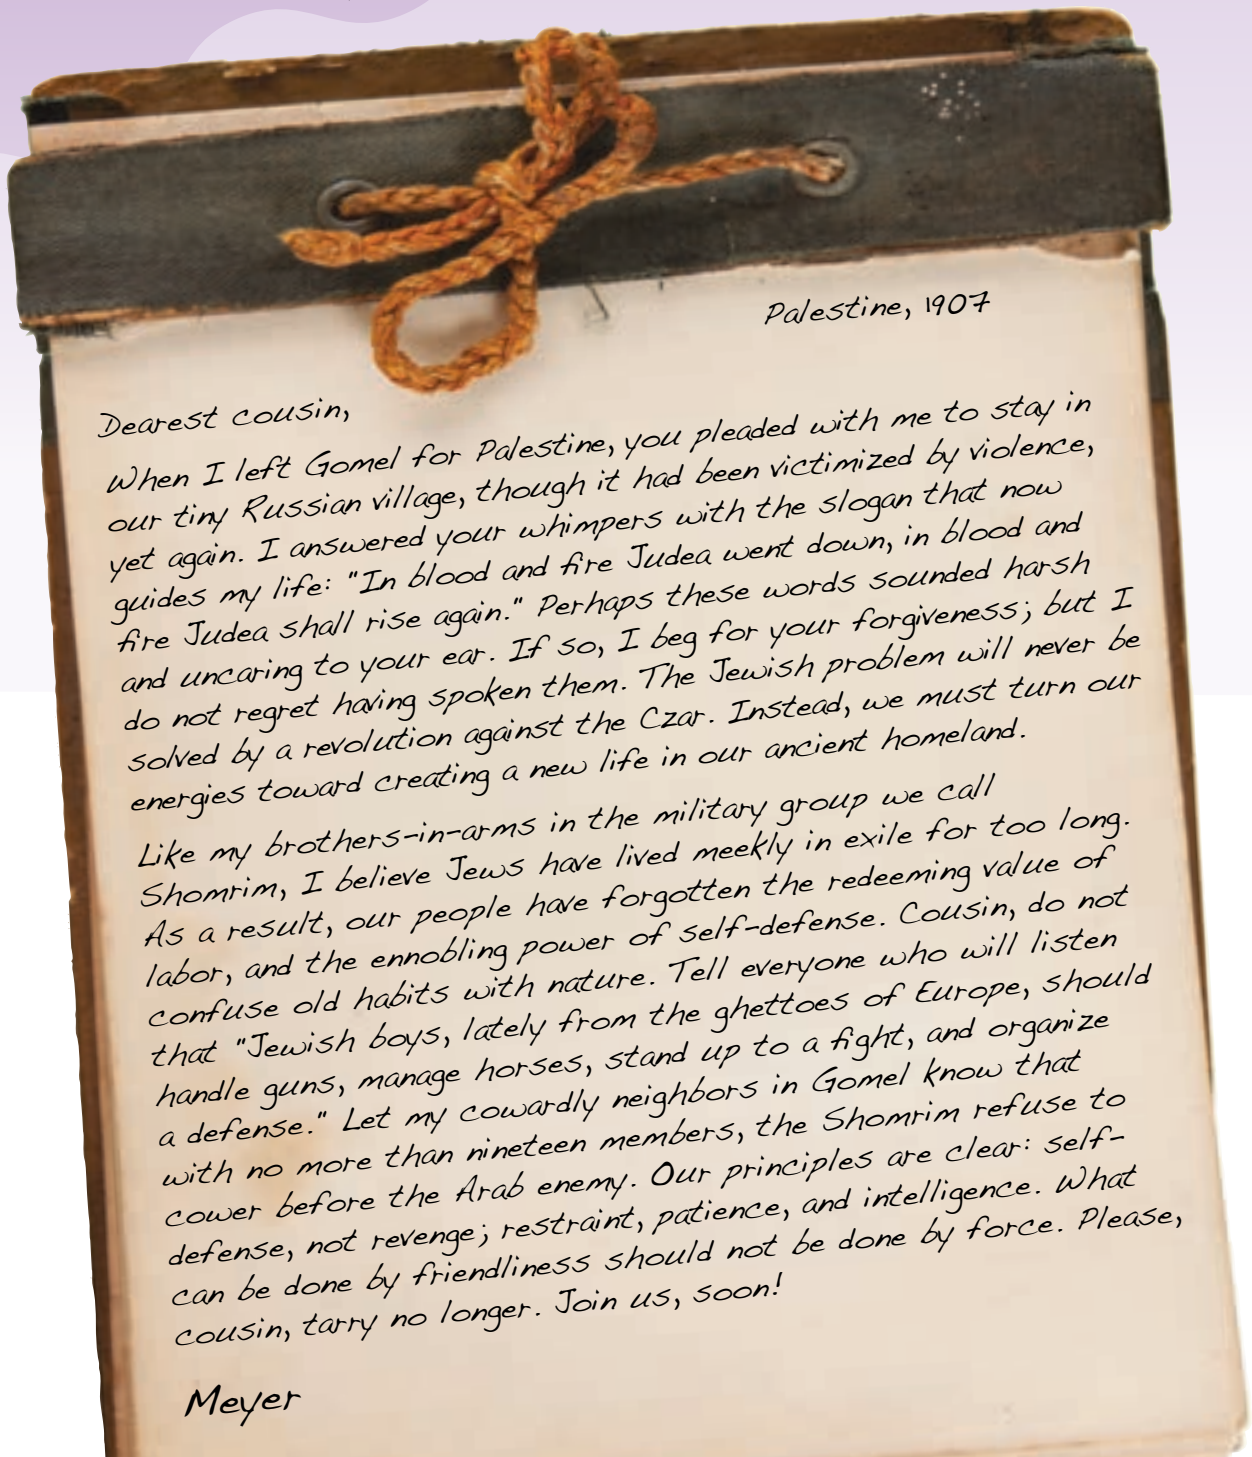 Palestine, 1907
Dearest cousin,
When I left Gomel for Palestine, you pleaded with me to stay in
our tiny Russian village, though it had been victimized by violence,
yet again. I answered your whimpers with the slogan that now
guides my life: "In blood and fire Judea went down, in blood and
fire Judea shall rise again." Perhaps these words sounded harsh
and uncaring to your ear. If so, I beg for your forgiveness; but I
do not regret having spoken them. The Jewish problem will never be
solved by a revolution against the Czar. Instead, we must turn our
energies toward creating a new life in our ancient homeland.
Like my brothers-in-arms in the military group we call
Shomrim, I believe Jews have lived meekly in exile for too long.
As a result, our people have forgotten the redeeming value of
labor, and the ennobling power of self-defense. Cousin, do not
confuse old habits with nature. Tell everyone who will listen
that "Jewish boys, lately from the ghettoes of Europe, should
handle guns, manage horses, stand up to a fight, and organize
a defense." Let my cowardly neighbors in Gomel know that
with no more than nineteen members, the Shomrim refuse to
cower before the Arab enemy. Our principles are clear: self-
defense, not revenge; restraint, patience, and intelligence. What
can be done by friendliness should not be done by force. Please,
cousin, tarry no longer. Join us, soon!
Meyer